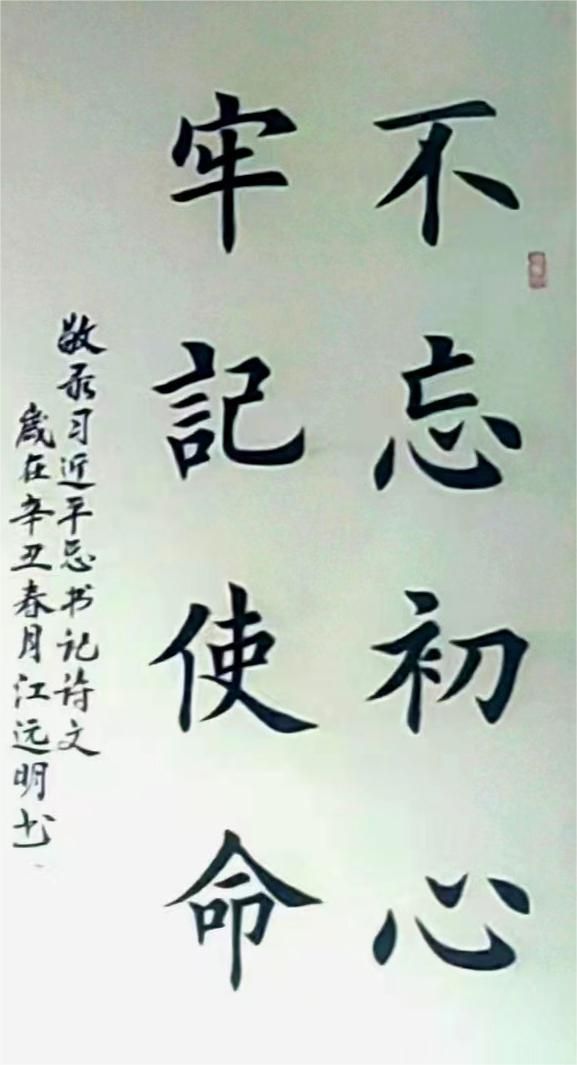 不忘初心
牢記使命
敬录习近平总书记诗文
歲在辛丑春月江远明书